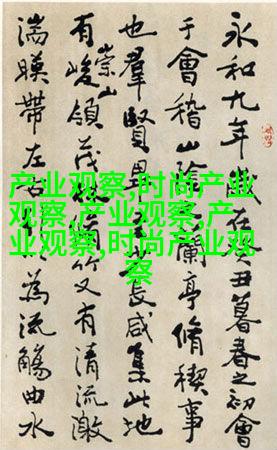 产业观察,时尚产业
观察,产业观察,产
业观察,时尚产业观
察
永和九年歲在癸丑暮春之初會
于會稽山陰蘭亭脩稧事
也羣賢畢長咸集此地
有崇山峻領茂林脩竹又有清流激
湍暎帶左右為流觴曲水